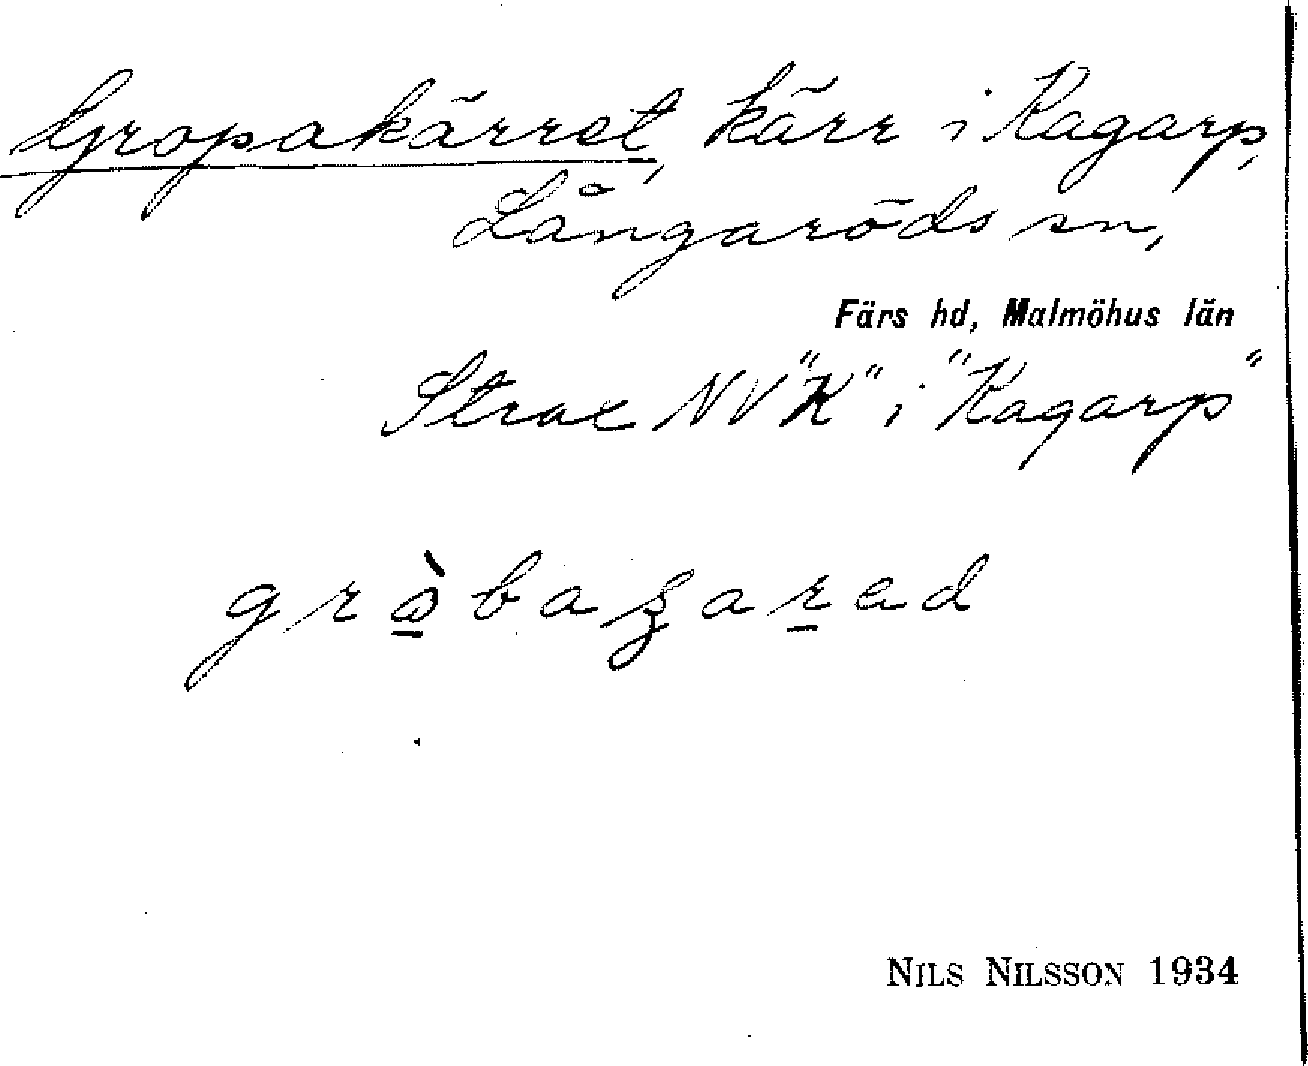 Gropakärret, kärr i Kagarp,
Långaröds sn,
Färs hd, Malmöhus län
Strax NV "K" i "Kagarp"
NILS NILSSON 1934